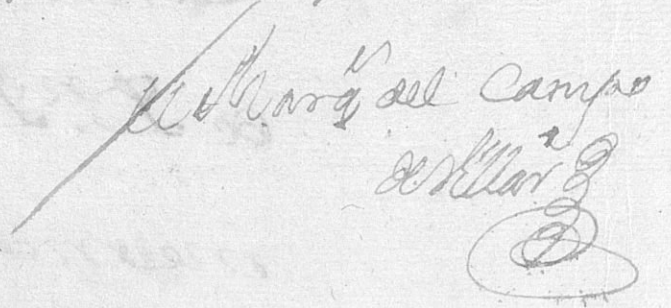 El Marqs del Campo
de Villar